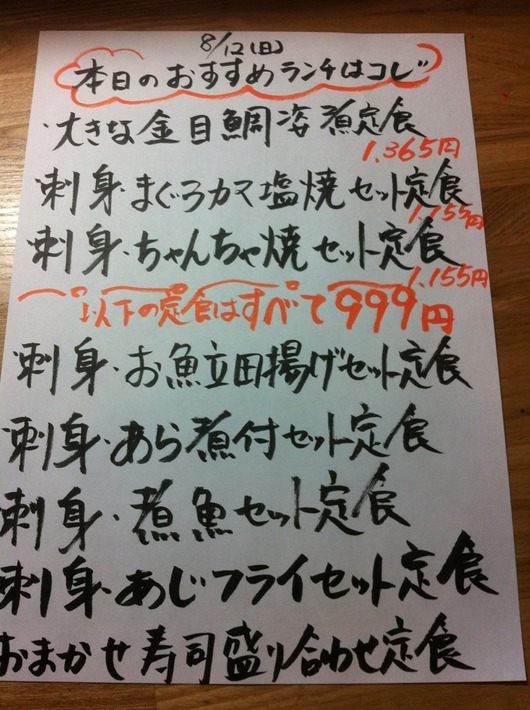 8/12(日)
本日のおすすめランチはコレ
・大きな金目鯛姿煮定食
1,365円
刺身・まぐろカマ塩焼セット定食
1,155円
刺身・ちゃんちゃ焼セット定食
1,155円
以下の定食はすべて999円
刺身・お魚立田揚げセット定食
刺身・あら煮付セット定食
刺身・煮魚セット定食
刺身・あじフライセット定食
おまかせ寿司盛り合わせ定食